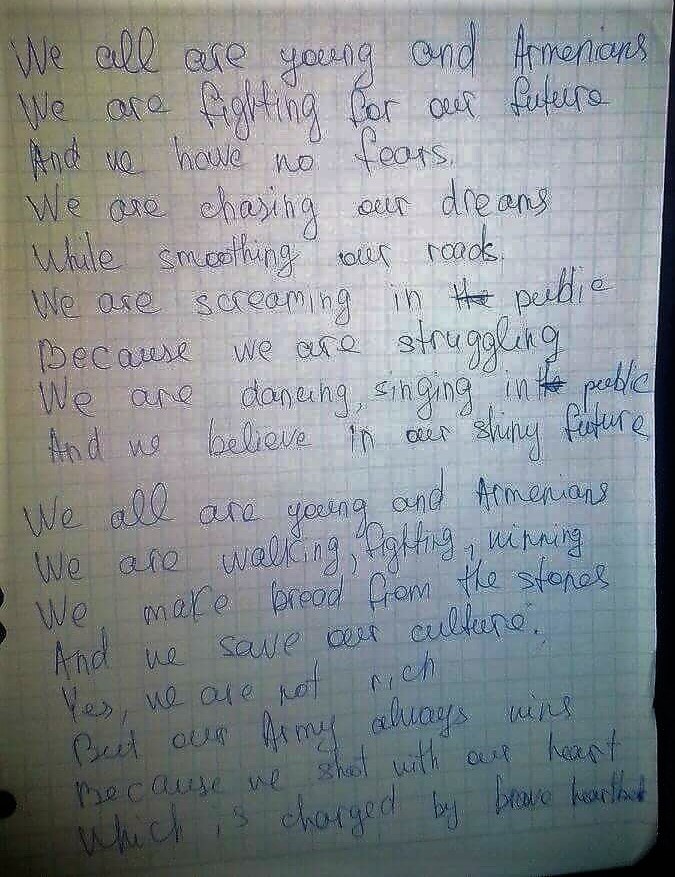 We all are young and Armenians
We are fighting for our future
And we have no fears.
We are chasing our dreams
While smoothing our roads.
We are screaming in the public
Because we are struggling
We are dancing, singing in the public
And we believe in our shiny future
We all are young and Armenians
We are walking, fighting, winning
We make bread from the stones
And we save our culture.
Yes, we are not rich
But our Army always wins
Because we shot with our heart
Which is charged by brave